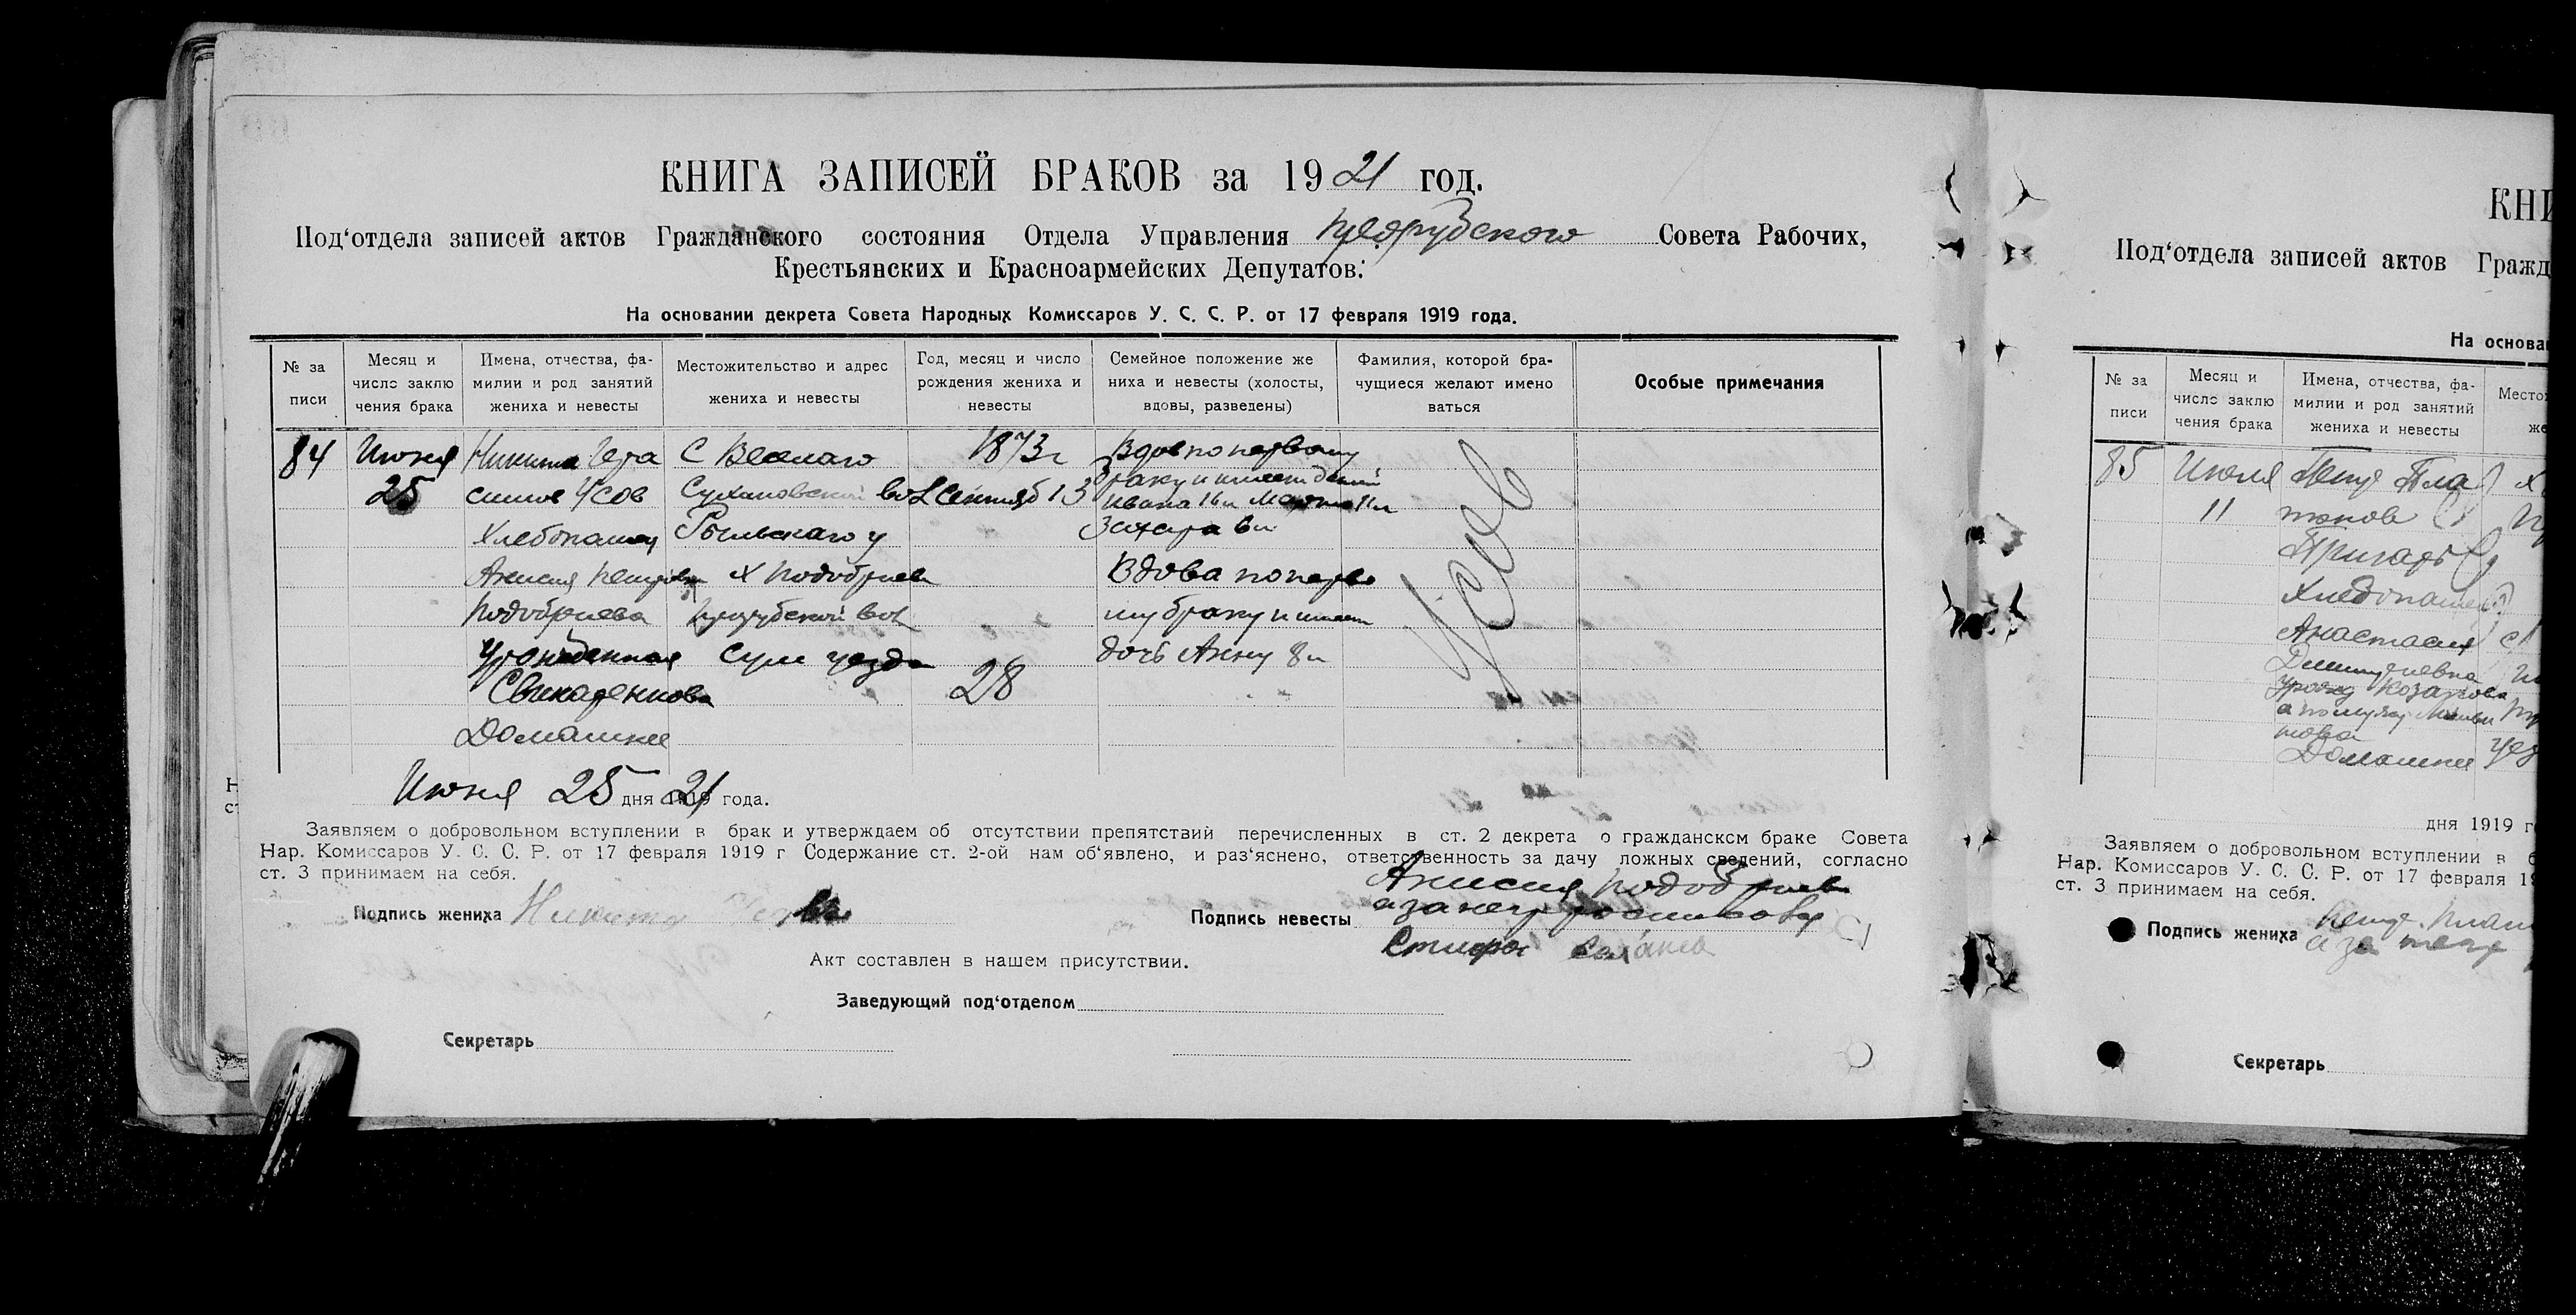 КНИГА ЗАПИСЕЙ БРАКОВ за 1921 год.
Под‘отдела записей актов Гражданского состояния Отдела Управления Совета Рабочих,
Крестьянских и Красноармейских Депутатов.
На основании декрета Совета Народных Комиссаров У. С. С. Р. от 17 февраля 1919 года.
№ за
писи
Месяц и
число заклю
чения брака
Имена, отчества, фа-
милии и род занятий
жениха и невесты
Местожительство и адрес
жениха и невесты
Год, месяц и число
рождения жениха и
невесты
Семейное положение же
ниха и невесты (холосты,
вдовы, разведены)
Фамилия, которой бра-
чущиеся желают имено
ваться
Особые примечания
84
Июня
25
Никита Гера
симов Усов
Хлебопашец
Анисия
Подобриева
Урожденная
Домашнее
С Веселаго
Сухановской вол
Рыльскаго у
х
вол
Сум уезда
1873г
Сентяб 13
28
Вдов по первому
браку и имеет детей
Ивана 16л 11л
Захара 6л
Вдова по перво
му браку и имеет
дочь Анну 8л
Усов
Июня 25 дня 21 года.
Заявляем о добровольном вступлении в брак и утверждаем об отсутствии препятствий перечисленных в ст. 2 декрета о гражданском браке Совета
Нар. Комиссаров У. С. С. Р. от 17 февраля 1919 г Содержание ст. 2-ой нам об‘явлено, и раз‘яснено, ответственность за дачу ложных сведений, согласно
ст. 3 принимаем на себя.
Подпись жениха Никита
Подпись невесты Анисия
Акт составлен в нашем присутствии.
Заведующий под‘отделом
Секретарь
КНИ
Под‘отдела записей актов Гражд
На основа
№ за
писи
Месяц и
число заклю
чения брака
Имена, отчества, фа-
милии и род занятий
жениха и невесты
Место
же
85
Июля
11
Петр Пла
тонов
Хлебопашец
Анастасия
Домашнее
дня 1919 г
Заявляем о добровольном вступлении в б
Нар. Комиссаров У. С. С. Р. от 17 февраля 19
ст. 3 принимаем на себя.
Подпись жениха
Секретарь